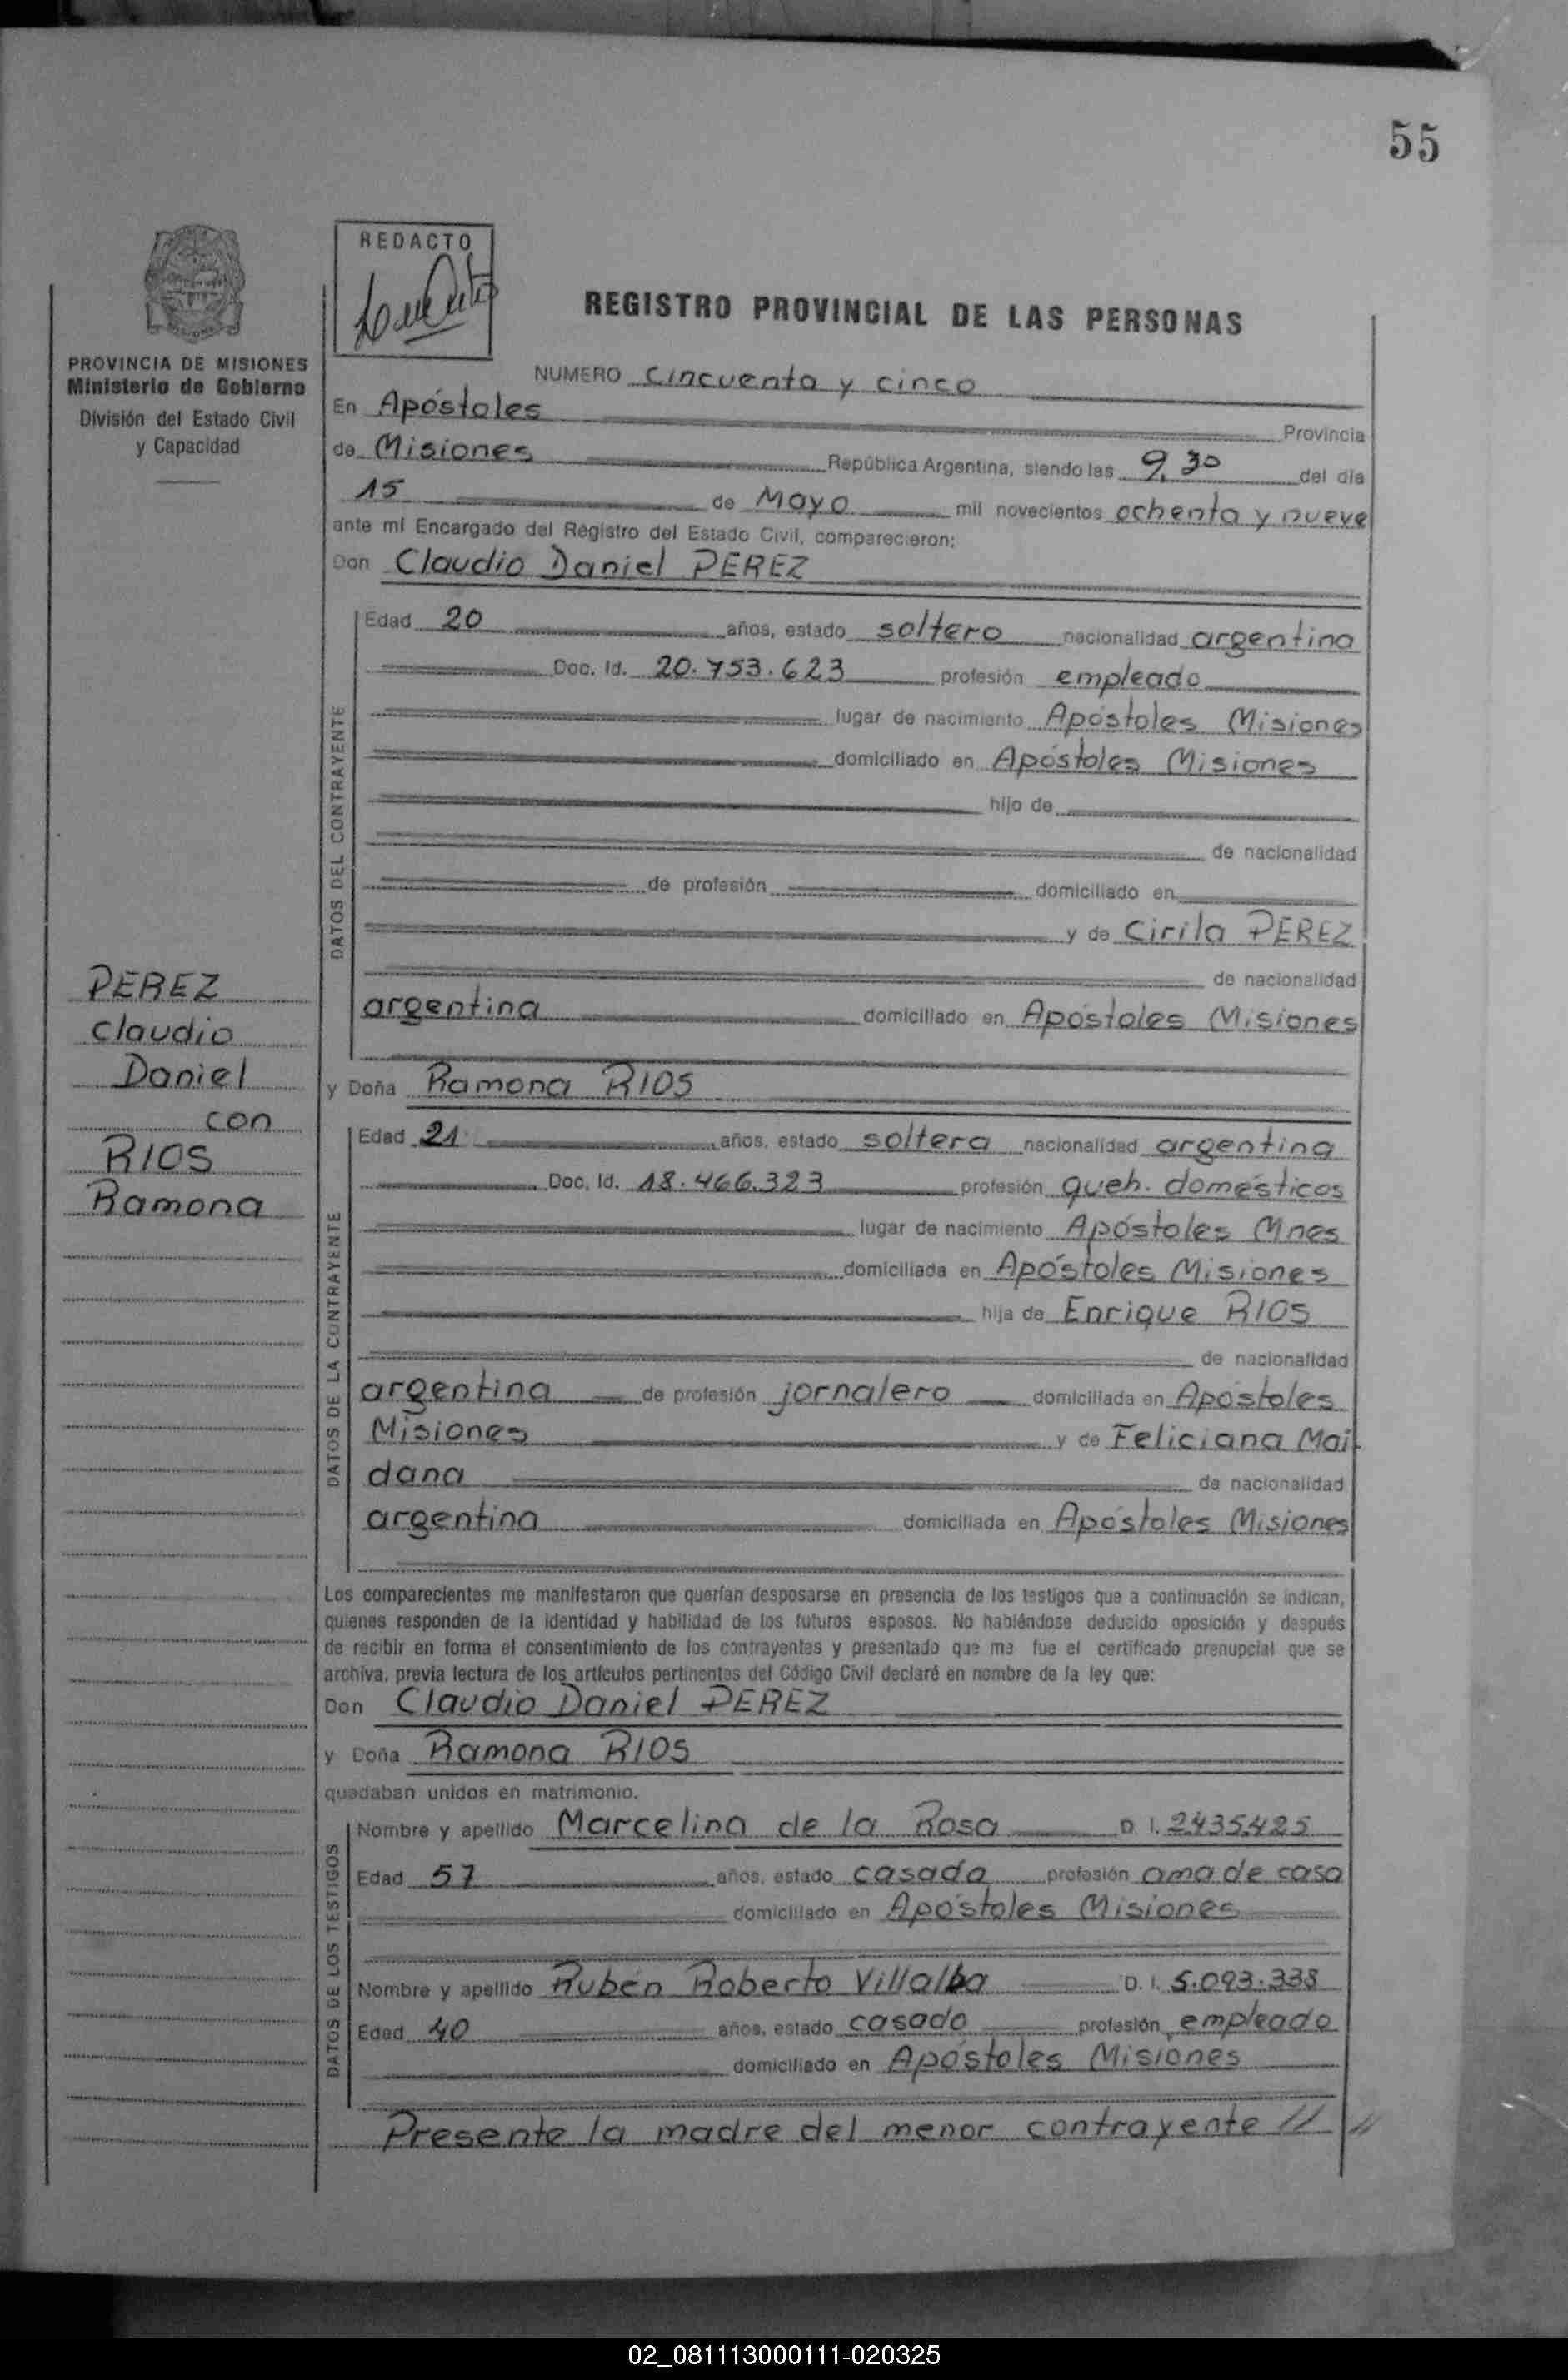 55
REDACTO
REGISTRO PROVINCIAL DE LAS PERSONAS
PROVINCIA DE MISIONES
Ministerio de Gobierno
División del Estado Civil
y Capacidad
NUMERO cincuenta y cinco
En Apóstoles Provincia
de Misiones República Argentina, siendo las 9,30 del día
15 de Mayo mil novecientos ochenta y nueve
ante mi Encargado del Registro del Estado Civil, comparecieron:
Don Claudio Daniel PEREZ
DATOS DEL CONTRAYENTE
Edad 20 años, estado soltero nacionalidad argentina
Doc. Id. 20.753.623 profesión empleado
lugar de nacimiento Apóstoles Misiones
domiciliado en Apóstoles Misiones
hijo de
de nacionalidad
de profesión domiciliado en
y de Cirila PEREZ
de nacionalidad
argentina domiciliado en Apóstoles Misiones
PEREZ
Claudio
Daniel
con
RIOS
Ramona
y Doña Ramona RIOS
DATOS DE LA CONTRAYENTE
Edad 21 años, estado soltera nacionalidad argentina
Doc. Id. 18.466.323 profesión queh. domésticos
lugar de nacimiento Apóstoles Mnes
domiciliada en Apóstoles Misiones
hija de Enrique RIOS
de nacionalidad
argentina de profesión jornalero domiciliada en Apóstoles
Misiones y de Feliciana Mai
dana de nacionalidad
argentina domiciliada en Apóstoles Misiones
Los comparecientes me manifestaron que querían desposarse en presencia de los testigos que a continuación se indican,
quienes responden de la identidad y habilidad de los futuros esposos. No habiéndose deducido oposición y después
de recibir en forma el consentimiento de los contrayentes y presentado que me fue el certificado prenupcial que se
archiva, previa lectura de los artículos pertinentes del Código Civil declaré en nombre de la ley que:
Don Claudio Daniel PEREZ
y Doña Ramona RIOS
quedaban unidos en matrimonio.
DATOS DE LOS TESTIGOS
Nombre y apellido Marcelina de la Rosa D. I. 2.435.425
Edad 57 años, estado casada profesión ama de casa
domiciliado en Apóstoles Misiones
Nombre y apellido Rubén Roberto Villalba D. I. 5.093.338
Edad 40 años, estado casado profesión empleado
domiciliado en Apóstoles Misiones
Presente la madre del menor contrayente // //
02_081113000111-020325